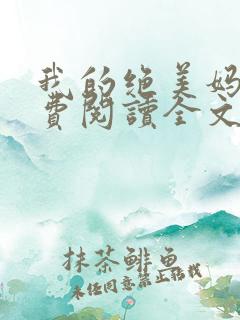 我的绝美妈
费阅读全文
抹茶鲱鱼
未经同意禁止转载